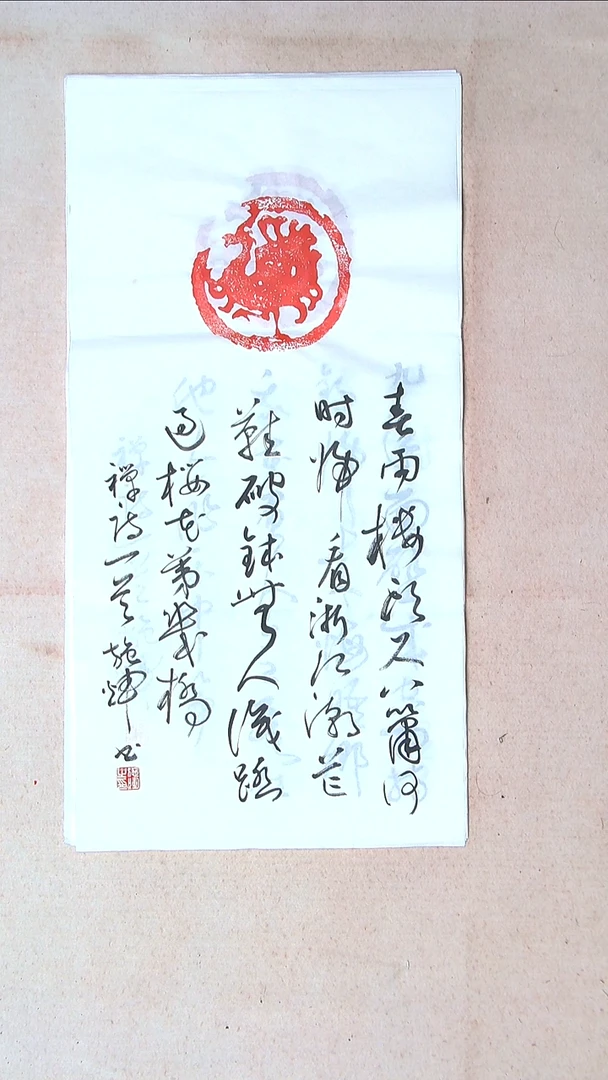 春雨楼头尺八箫何
时归看浙江潮芒
鞋破钵无人识踏
过樱花第几桥
禅诗一首施辉书